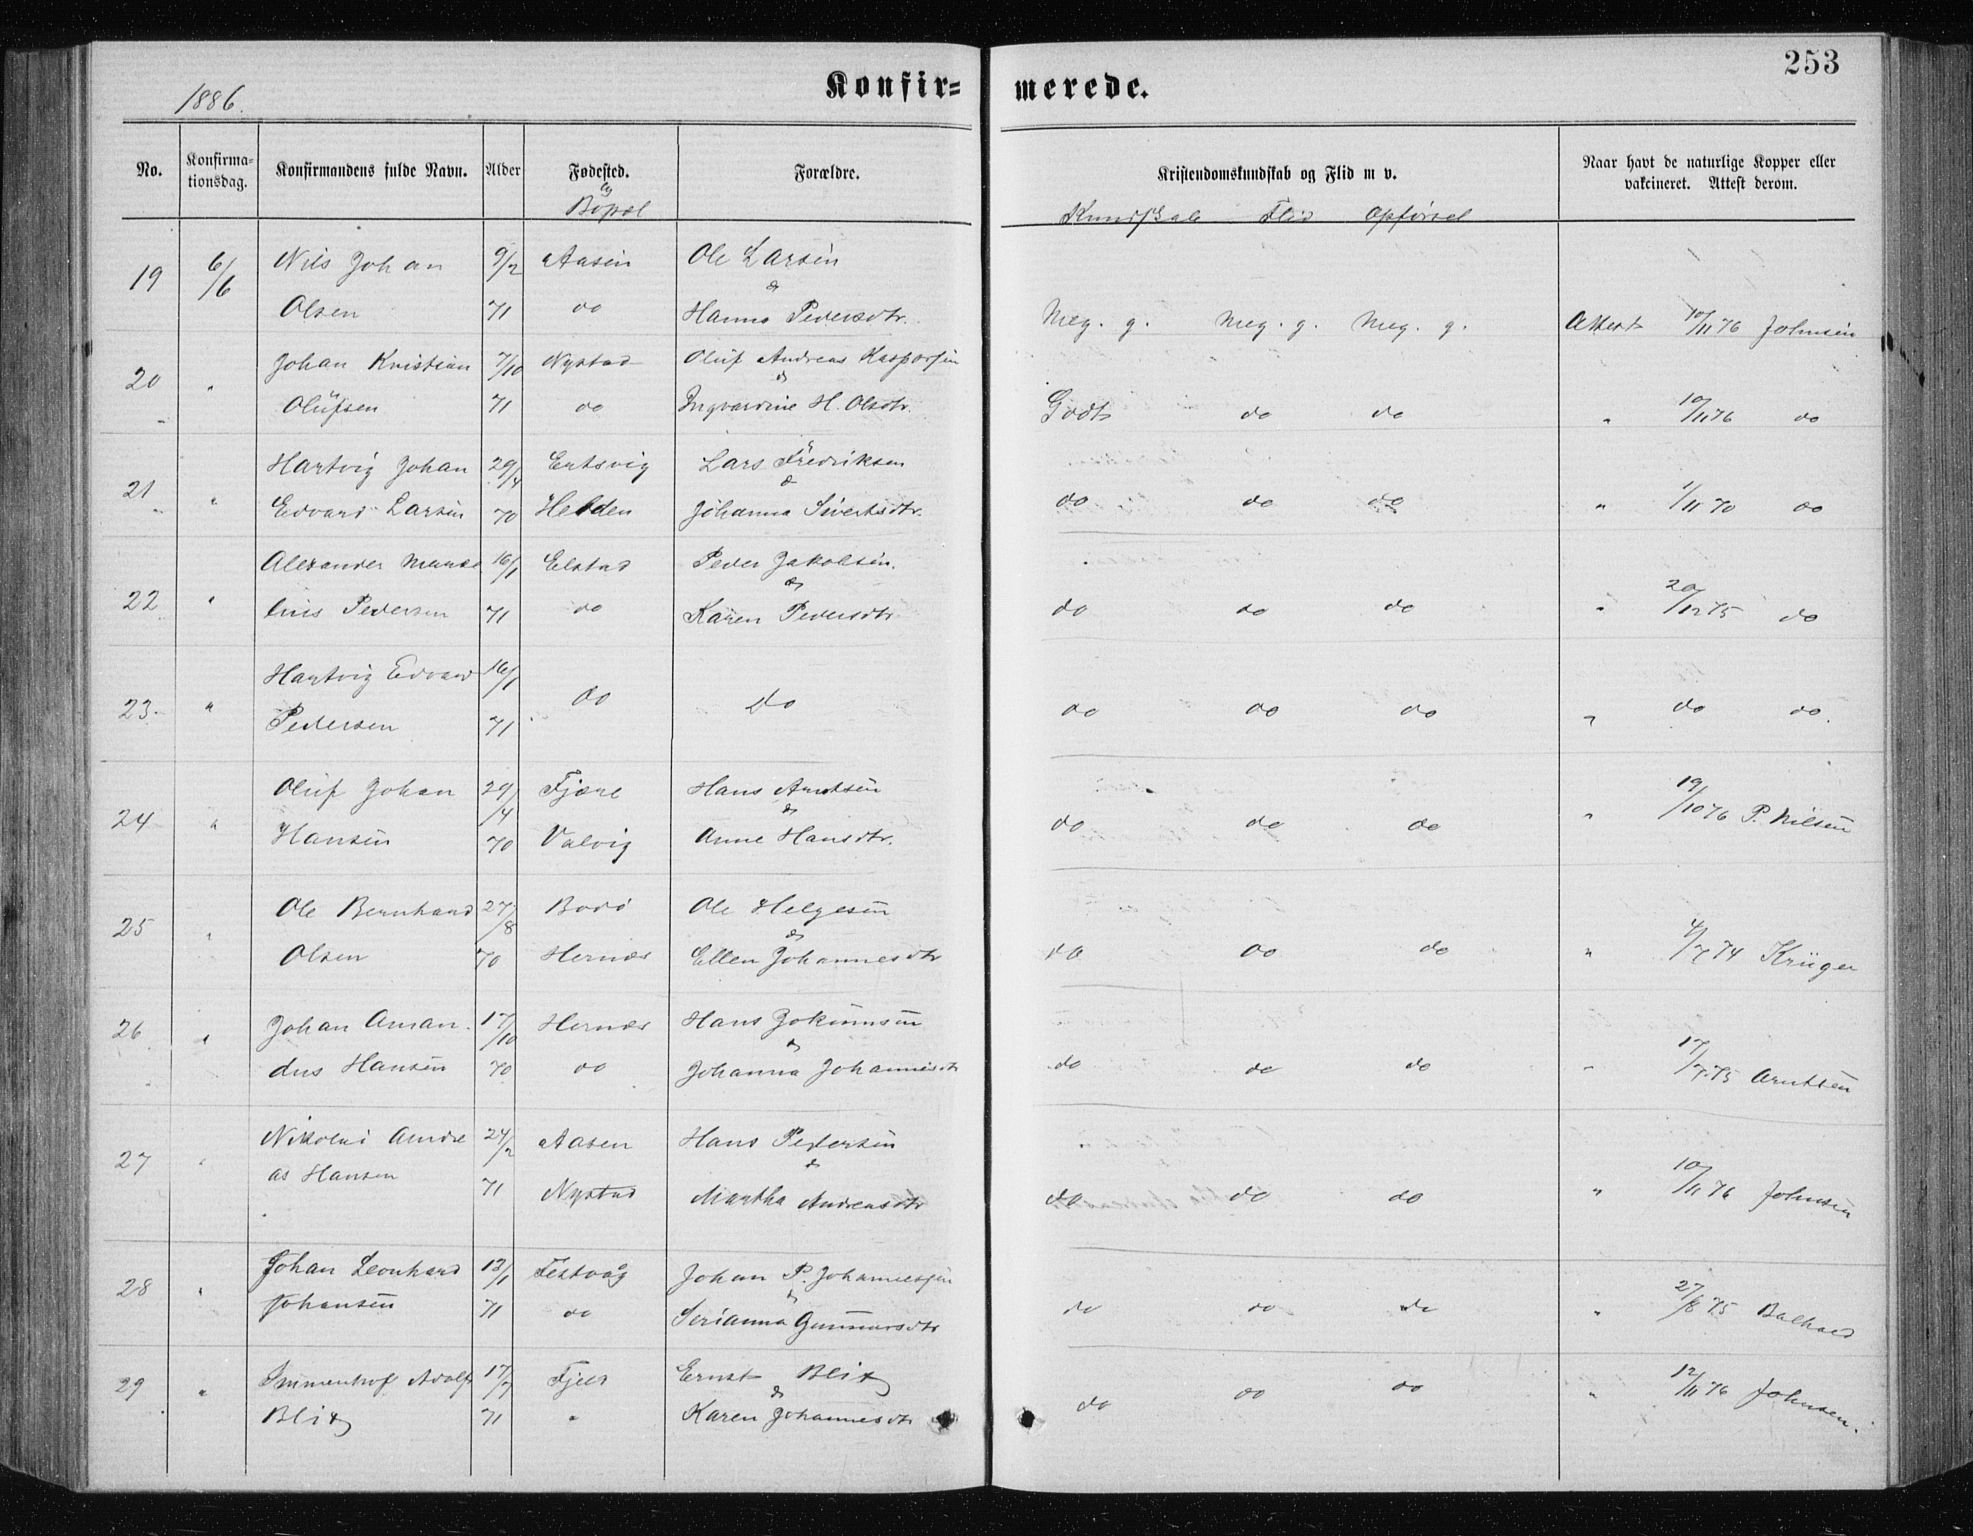 253
1886.
Konfir= merede.
No. Konfirma=tionsdag. Konfirmandens fulde Navn. Alder Fødested. Forældre. Kristendomskundskab og Flid m v. Naar havt de naturlige Kopper eller vakcineret. Attest derom.
og Bopæl Kundskab Flid Opførsel
19 6/6 Nils Johan 9/2 Aasen Ole Larsen
Olsen 71 do & Hanna Pedersdtr. Meg. g. Meg. g. Meg. g. Attest 10/11 76 Johnsen
20 " Johan Kristian 7/10 Nystad Oluf Andreas Kaspersen
Olufsen 71 do & Ingvardine H. Olsdtr. Godt do do " 10/11 76 do
21 " Hartvig Johan 29/4 Ertsvig Lars Fredriksen
Edvard Larsen 70 Helden & Johanna Sivertsdtr. do do do " 1/11 70 do
22 " Alexander 16/1 Elstad Peder Jakobsen.
lius Pedersen 71 do & Karen Pedersdtr. do do do " 20/12 75 do
23 " Hartvig Edvard 16/1 do Do do do do " do do.
Pedersen 71
24 " Oluf Johan 29/4 Fjære Hans Arntsen
Hansen 70 Valvig & Anne Hansdtr. do do do " 19/10 76 P. Nilsen
25 " Ole Bernhard 27/8 Bodø Ole Helgesen
Olsen 70 Hernes & Ellen Johannesdtr do do do " /7 74 Krüger
26 " Johan Aman 17/10 Hernes Hans Jokumsen
dus Hansen 70 do & Johanna Johannesdtr do do do " 17/7 75 Arntsen
27 " Nikolai Andre 24/2 Aasen Hans Pedersen
as Hansen 71 Nystad & Martha Andreasdtr do do do " 10/11 76 Johnsen
28 " Johan Leonhard 13/1 Festvåg Johan P. Johannessen
Johansen 71 do & Serianna Gunnarsdtr do do do " 27/8 75 Balhald
29 " Immenhof Adolf 17/7 Fjell Ernst Blix
Blix 71 " & Karen Johannesdtr do do do " 12/11 76 Johnsen.